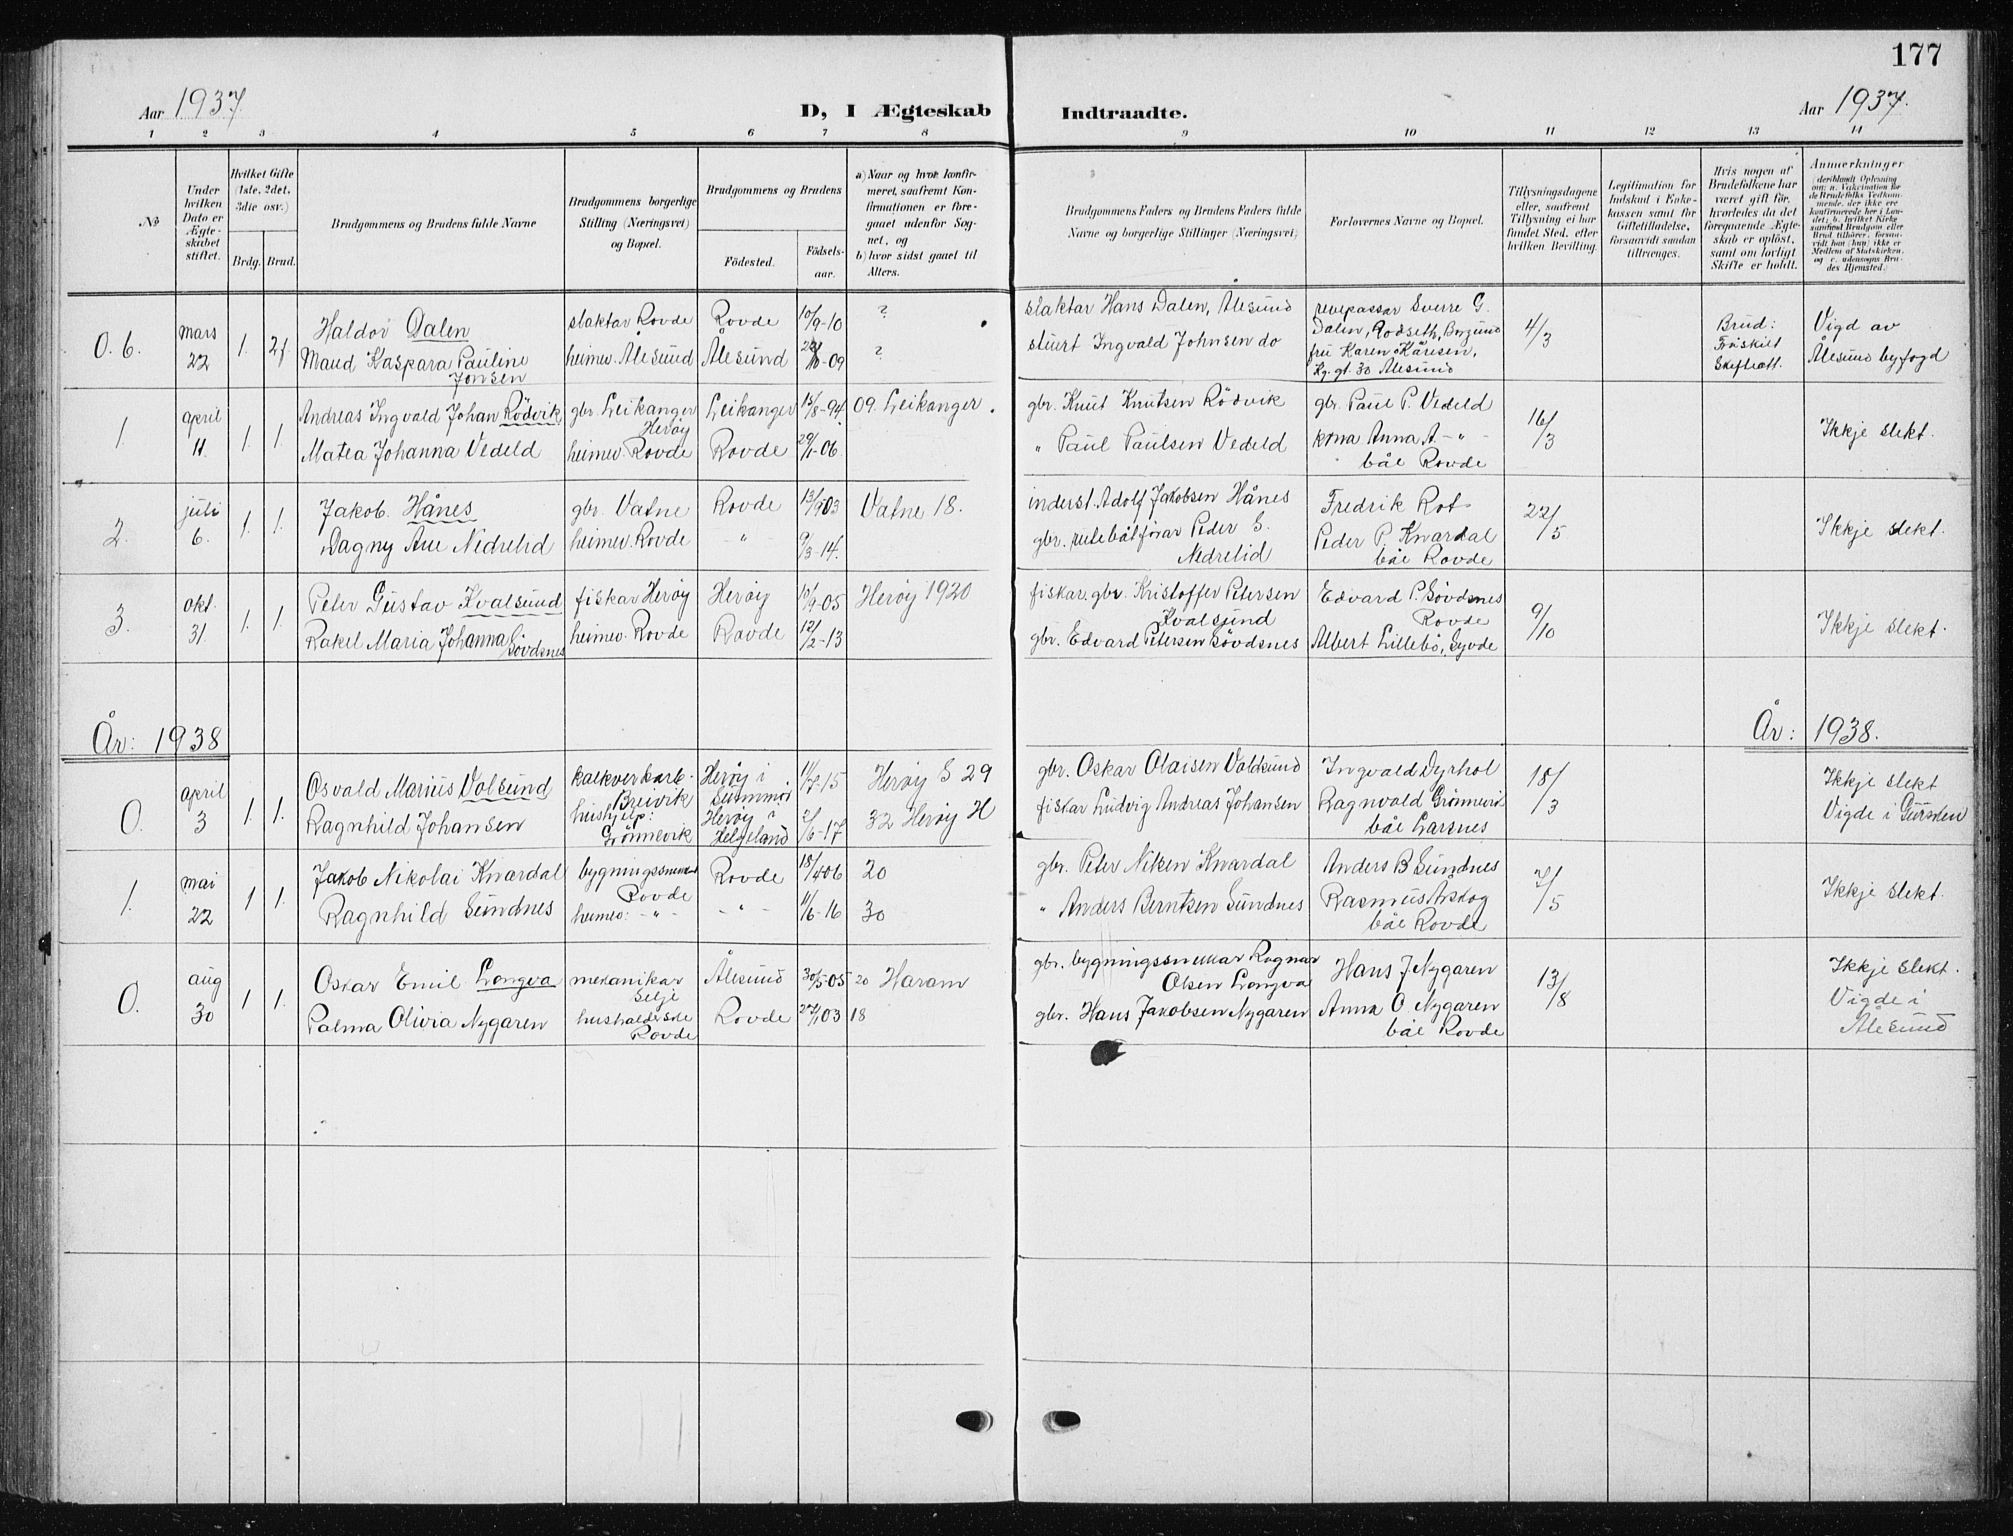 177
Aar 1937.
D, I Ægteskab Indtraadte.
Aar 1937.
1 2 3 4 5 6 7 8 9 10 11 12 13 14
No
Under hvilken Dato er Ægteskabet stiftet.
Hvilket Gifte (1ste, 2det, 3die osv.)
Brdg. Brud.
Brudgommens og Brudens fulde Navne
Brudgommens borgerlige Stilling (Næringsvei) og Bopæl.
Brudgommens og Brudens
Fødested.
Fødselsaar.
a) Naar og hvor konfirmeret, saafremt Konfirmationen er foregaaet udenfor Sognet, og
b) hvor sidst gaaet til Alters.
Brudgommens Faders og Brudens Faders fulde Navne og borgerlige Stillinger (Næringsvei)
Forlovernes Navne og Bopæl.
Tillysningsdagene eller, saafremt Tillysning ei har fundet Sted, efter hvilken Bevilling.
Legitimation for Indskud i Enkekassen samt for Giftetilladelse, forsaavidt saadan tiltrænges.
Hvis nogen af Brudefolkene har været gift før, hvorledes da det foregaaende Ægteskab er opløst, samt om lovligt Skifte er holdt.
Anmerkninger (deriblandt Oplysning om: a. Vakcination for de Brudefolks Vedkommende, der ikke ere konfirmerede her i Landet; b. hvilket Kirkesamfund Brudgom eller Brud tilhører, forsaavidt han (hun) ikke er Medlem af Statskirken, og c. udensogns Brudes Hjemsted.)
0. 6. mars 22 1. 2.
Haldor Dalen slaktar Rovde Rovde 10/9-10 ?
Maud Kaspara Pauline Jonsen heimev. Ålesund Ålesund -09 ?
slaktar Hans Dalen, Ålesund
stuert Ingvald Johnsen do
revepassar Sverre G. Dalen, Rodseth, Borgund
fru Karen Kåresen, Kg. gt. 30 Ålesund
4/3
Brud: Fråskilt Skifteatt.
Vigd av Ålesund byfogd
1. april 11 1. 1.
Andreas Ingvald Johan Rödvik gbr. Leikanger Herøy Leikanger 15/8-94. 09. Leikanger.
Matea Johanna Vedeld heimev. Rovde Rovde 29/1-06
gbr. Knut Knutsen Rödvik
" Paul Paulsen Vedeld
gbr. Paul P. Vedeld
kona Anna A - " -
båe Rovde
16/3
Ikkje slekt.
2. juli 6. 1. 1.
Jakob Hånes gbr. Vatne Rovde 13/9 03 Vatne 18.
Dagny Ane Nedrelid heimev. Rovde - " - 9/3-14.
inderst. Adolf Jakobsen Hånes
gbr. rutebåtförar Peder S. Nedrelid
Fredrik Rot
Peder P. Kvardal
båe Rovde
22/5
Ikkje slekt.
3. okt. 31. 1. 1.
Peter Gustav Kvalsund fiskar Herøy Herøy 10/9-05 Herøy 1920
Rakel Maria Johanna Søvdsnes heimev. Rovde Rovde 12/2-13
fiskar. gbr. Kristoffer Petersen Kvalsund
gbr. Edvard Petersen Søvdsnes
Edvard P. Søvdsnes Rovde
Albert Lillebö, Syvde
9/10
Ikkje slekt.
År: 1938
År: 1938.
0. april 3 1. 1.
Osvald Marius Volsund kalkverkarb. Breivik Herøy i Sunnmör 11/7-15 Herøy S 29
Ragnhild Johansen hushjelp: Grönnevik Herøy i Helgeland 2/6-17 32 Herøy H
gbr. Oskar Olaisen Voldsund
fiskar Ludvig Andreas Johansen
Ingvald Dyrhol
Ragnvald Grönnevik
båe Larsnes
18/3
Ikkje slekt
Vigde i Gursken
1. mai 22 1 1.
Jakob Nikolai Kvardal bygningssnekkar Rovde Rovde 18/4 06 20
Ragnhild Sundnes heimev: - " - - " - 11/6-16 30
gbr. Peter Nilsen Kvardal
" Anders Berntsen Sundnes
Anders B Sundnes
Rasmus Årskog
båe Rovde
7/5
Ikkje slekt.
0. aug 30 1 1.
Oskar Emil Longva mekanikar Selje Ålesund 30/5-05 20 Haram
Palma Olivia Nygaren Rovde Rovde 27/1 03 18
gbr. bygningssnekkar Ragnar Olsen Longva
gbr. Hans Jakobsen Nygaren
Hans J Nygaren
Anna O Nygaren
båe Rovde
13/8
Ikkje slekt.
Vigde i Ålesund